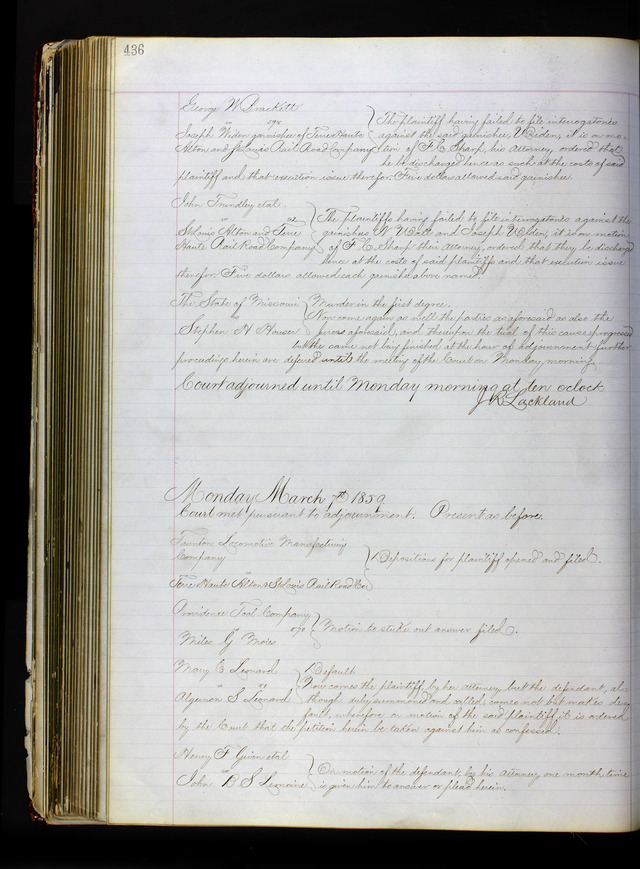 436
George W Brackett
vs
Joseph Widen garnishee of Terre Haute
Alton and St Louis Rail Road Company
The plaintiff having failed to file interrogatories
against the said garnishee, Widen, it is on mo-
tion of F. C. Sharp, his Attorney, ordered that
he be discharged hence as such at the costs of said
plaintiff and that execution issue therefor. Five dollars allowed said garnishee.
John Trindley etal
vs
St Louis Alton and Terre
Haute Rail Road Company
The plaintiffs having failed by file interrogatories against the
garnishees N and Joseph Widen, it is on motion
of F C Sharp their Attorney, ordered that they be discharged
hence at the costs of said plaintiffs and that execution issue
therefor. Five dollars allowed each garnishee above named.
The State of Missouri
vs
Stephen H Houser
Murder in the first degree.
Now come again as well the parties as aforesaid as also the
jurors aforesaid, and thereupon the trial of this cause progressed
but the same not being finished at the hour of adjournment further
proceedings herein are deferred until the meeting of the Court on Monday morning.
Court adjourned until Monday morning at ten oclock
J R Lackland
Monday March 7th 1859
Court met pursuant to adjournment. Present as before.
Taunton Locomotive Manufacturing
Company
vs
Terre Haute Alton & St Louis Rail Road Co
Depositions for plaintiff opened and filed.
Providence Tool Company
vs
Miles G Moies
Motion to strike out answer filed.
Mary E Leonard
vs
Algernon S Leonard
Default
Now comes the plaintiff by her attorney but the defendant, al-
though duly summoned and called, comes not but makes de-
fault, wherefore on motion of the said plaintiff, it is ordered
by the Court that the petition herein be taken against him as confessed.
Henry F Givin etal
vs
John B S Lemoine
On motion of the defendant, by his Attorney, one month time
is given him to answer or plead herein.